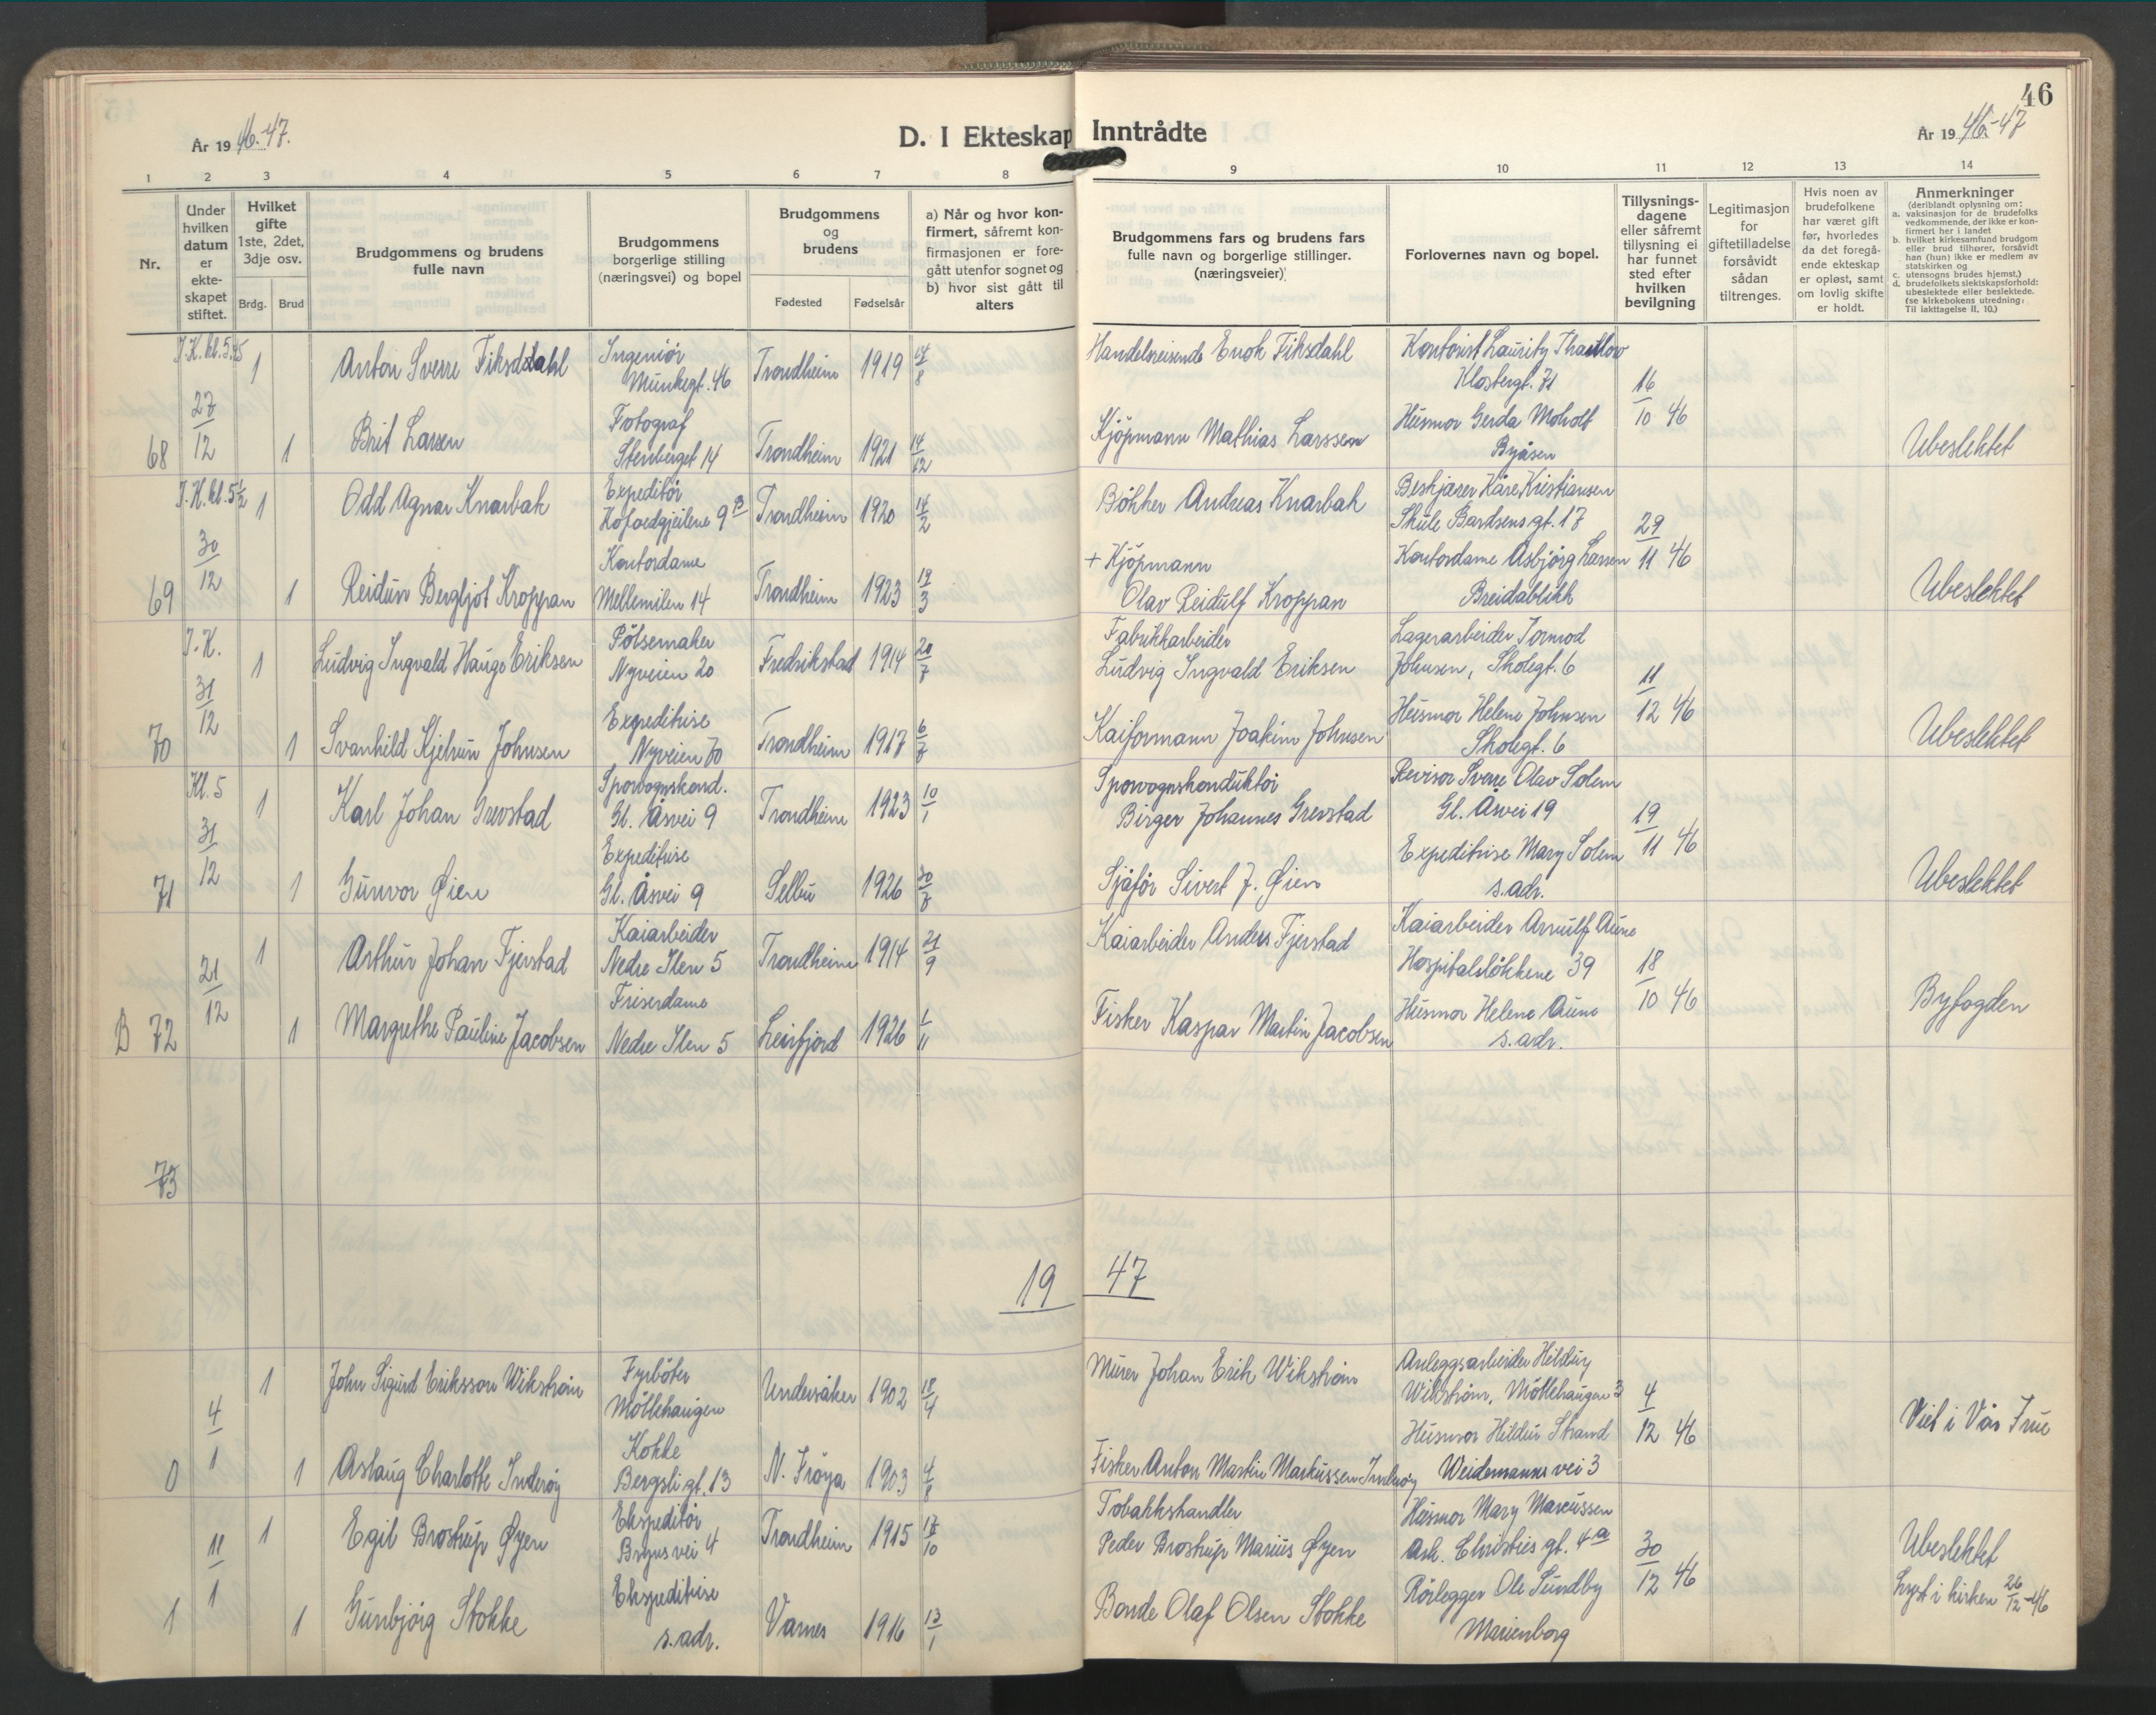 46
År 1946-47.
D. I Ekteskap Inntrådte
År 1946-47
1 2 3 4 5 6 7 8 9 10 11 12 13 14
Nr.
Under hvilken datum er ekteskapet stiftet.
Hvilket gifte 1ste, 2det, 3dje osv.
Brdg. Brud
Brudgommens og brudens fulle navn
Brudgommens borgerlige stilling (næringsvei) og bopel
Brudgommens og brudens
Fødested Fødselsår
a) Når og hvor konfirmert, såfremt konfirmasjonen er foregått utenfor sognet og b) hvor sist gått til alters
Brudgommens fars og brudens fars fulle navn og borgerlige stillinger. (næringsveier)
Forlovernes navn og bopel.
Tillysningsdagene eller såfremt tillysning ei har funnet sted efter hvilken bevilgning
Legitimasjon for giftetilladelse forsåvidt sådan tiltrenges.
Hvis noen av brudefolkene har været gift før, hvorledes da det foregående ekteskap er opløst, samt om lovlig skifte er holdt.
Anmerkninger
(deriblandt oplysning om:
a. vaksinasjon for de brudefolks vedkommende, der ikke er konfirmert her i landet
b. hvilket kirkesamfund brudgom eller brud tilhører, forsåvidt han (hun) ikke er medlem av statskirken og
c. utensogns brudes hjemst.)
d. brudefolkets slektskapsforhold: ubeslektede eller beslektede.
(se kirkebokens utredning: Til iakttagelse II, 10.)
I.K. kl. 5.45 1 Anton Sverre Fiksdahl Ingeniör Munkegt. 46 Trondheim 1919 14/8 Handelsreisende Enok Fiksdahl Kontorist Lauritz Thaulow Klostergt. 71 16/10 46
68 27/12 1 Brit Larsen Fotograf Stenberget 14 Trondheim 1921 14/12 Kjöpmann Mathias Larssen Husmor Gerda Moholt Byåsen Ubeslektet
I.K. kl. 5 1/2 1 Odd Agnar Knarbak Expeditör Kofoedgjeilene 9 B Trondheim 1920 14/2 Bökker Andreas Knarbak Beskjærer Kåre Kristiansen Skule Bardsens gt. 17 29/11 46
69 30/12 1 Reidun Bergljot Kroppan Kontordame Mellemilen 14 Trondheim 1923 19/3 + Kjöpmann Olav Reidulf Kroppan Kontordame Asbjörg Larsen Breidablikk Ubeslektet
I.K. 1 Ludvig Ingvald Hauge Eriksen Pölsemaker Nyveien 20 Fredrikstad 1914 20/7 Fabrikkarbeider Ludvig Ingvald Eriksen Lagerarbeider Tormod Johnsen, Skolegt. 6 11/12 46
70 31/12 1 Svanhild Kjelrun Johnsen Expeditrise Nyveien 70 Trondheim 1917 6/7 Kaiformann Joakim Johnsen Husmor Helene Johnsen Skolegt. 6 Ubeslektet
Kl. 5 1 Karl Johan Grevstad Sporvognskond. Gl. Åsvei 9 Trondheim 1923 10/1 Sporvognskonduktör Birger Johannes Grevstad Revisor Sverre Olav Solem Gl. Åsvei 19 19/11 46
71 31/12 1 Gunvor Øien Expeditrise Gl. Åsvei 9 Selbu 1926 30/7 Sjåför Sivert J. Øien Expeditrise Mary Solem s. adr. Ubeslektet
1 Arthur Johan Fjerstad Kaiarbeider Nedre Ilen 5 Trondheim 1914 21/9 Kaiarbeider Anders Fjerstad Kaiarbeider Arnulf Aune Hospitalslökkene 39 18/10 46
B 72 21/12 1 Margrethe Pauline Jacobsen Friserdame Nedre Ilen 5 Leirfjord 1926 1/11 Fisker Kaspar Martin Jacobsen Husmor Helene Aune s. adr. Byfogden
73
19 47
1 John Sigurd Eriksson Wikström Fyrböter Möllehaugen Undersåker 1902 18/4 Murer Johan Erik Wikström Anleggsarbeider Hilding Wikström, Möllehaugen 3 4/12 46
0 4/1 1 Aslaug Charlotte Inderöy Kokke Bergsli gt. 13 N. Fröya 1903 4/8 Fisker Anton Martin Markussen Inderöy Husmor Hildur Strand Weidemanns vei 3 Viet i Vår Frue
1 Egil Brostrup Øyen Ekspeditör Bryns vei 4 Trondheim 1915 17/10 Tobakkshandler Peder Brostrup Marius Øyen Husmor Mary Marcussen Ark. Christies gt. 4 a 30/12 46 Ubeslektet
1 11/1 1 Gunbjörg Stokke Ekspeditrise s. adr. Varnes 1916 13/1 Bonde Olaf Olsen Stokke Rörlegger Ole Sundby Marienborg Lyst i kirken 26/12-46